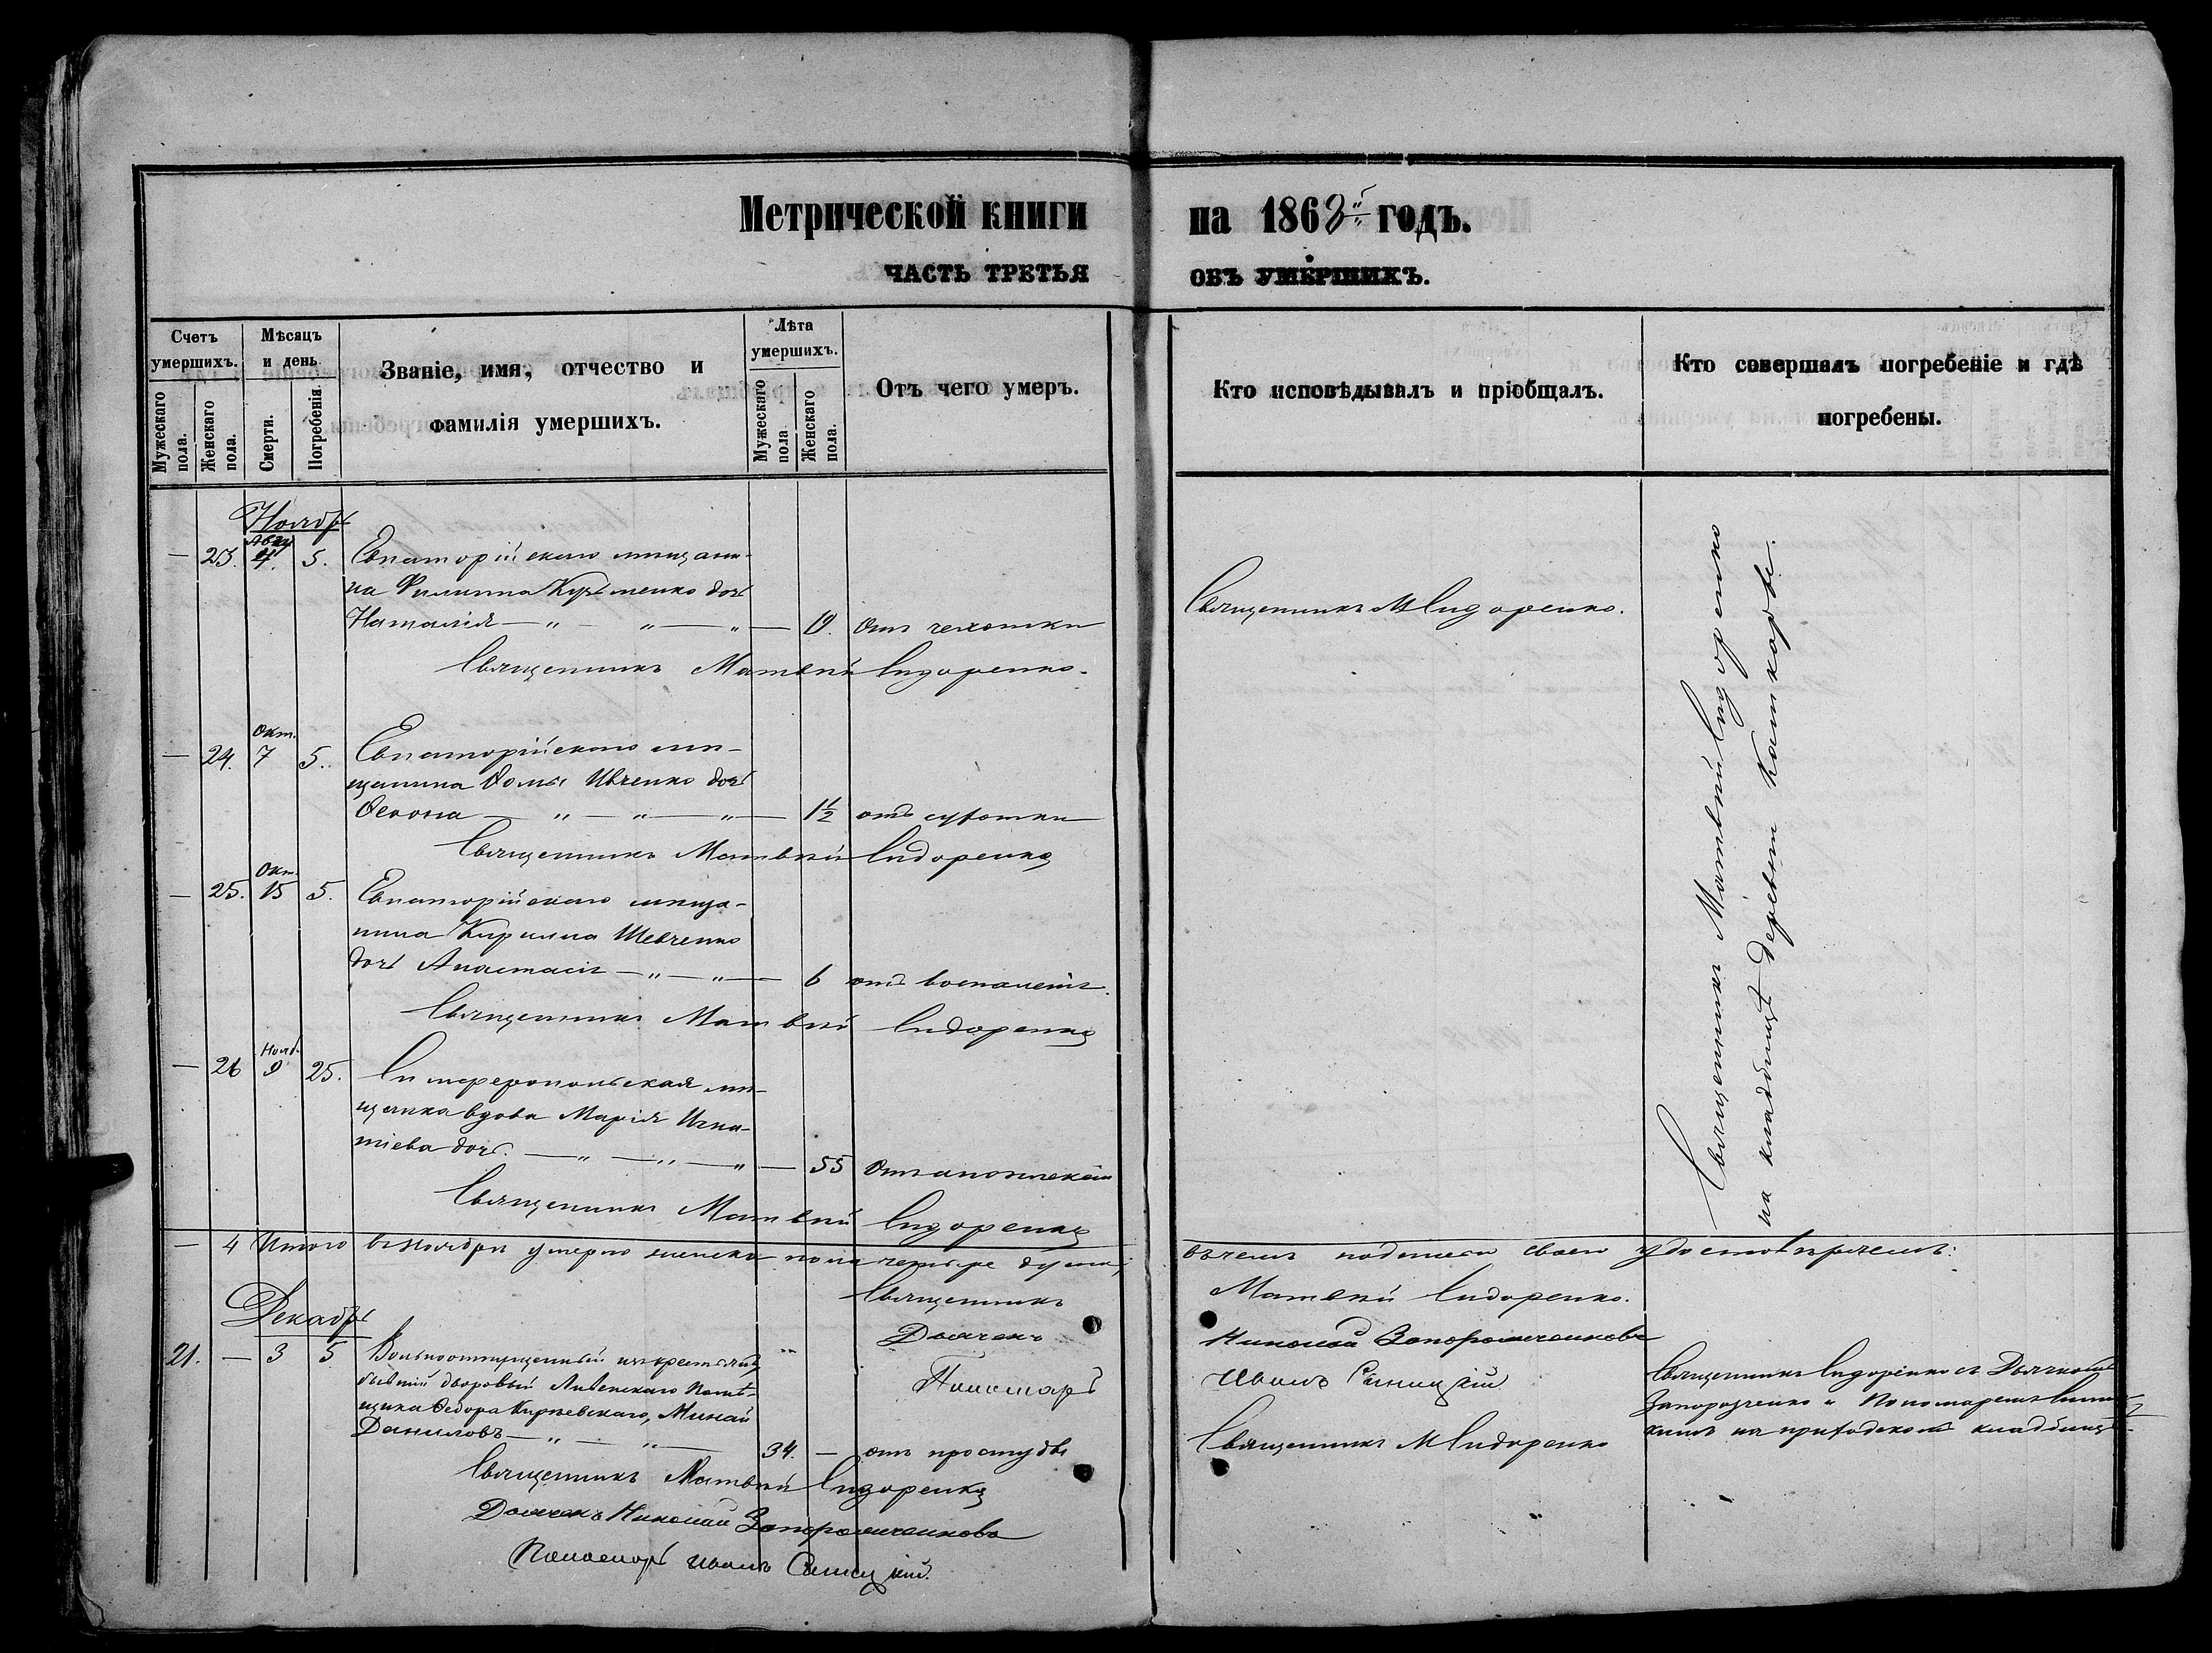 Метрической книги
на 1868й годъ.
ЧАСТЬ ТРЕТЬЯ
ОБЪ УМЕРШИХЪ.
Счетъ умершихъ.
Мужескаго пола.
Женскаго пола.
Мѣсяцъ и день
Смерти.
Погребенія.
Званіе, имя, отчество и
фамилія умершихъ.
Лѣта умершихъ.
Мужескаго пола
Женскаго пола.
Отъ чего умеръ.
Кто исповѣдывалъ и пріобщалъ.
Кто совершалъ погребеніе и гдѣ
погребены.
Ноябрь
Авгу
— 23. 4. 5. Евпаторійскаго мѣщани-
на Филиппа Кузьменко дочь
Наталія — " — " — " — 19. Отъ чахотки
Священникъ М Сидоренко.
Священникъ Матвей Сидоренко.
Окт.
— 24. 7 5. Евпаторійскаго мѣ-
щанина Ѳомы Ивченко дочь
— " — " — " — 1½ отъ сухотки
Священникъ Матвей Сидоренко
Окт.
— 25. 15 5. Евпаторійскаго мѣща-
нина Кирилла Шевченко
дочь Анастасія — " — " — 6 отъ воспаленія.
Священникъ Матвей Сидоренко
Нояб.
— 26 9 25. Симферопольская мѣ-
щанка вдова Марія Игна-
тіева дочь. — " — " — " — 55 Отъ апоплексіи
Священникъ Матвей Сидоренко
Священникъ Матвѣй Сидоренко
на кладбищѣ деревни
— 4 Итого въ Ноябрѣ умерло женска пола четыре души,
въ чемъ подписью своею удостовѣряемъ:
Священникъ Матвей Сидоренко.
Дьячекъ Николай Запорожченковъ
Пономарь Иванъ Синицкій
Декабрь
21. — 3 5 Вольноотпущенный изъ крестьянъ,
бывшій дворовый помѣ-
щика Ѳедора Минай
Даниловъ — " — " — 34. — отъ простуды
Священникъ М Сидоренко
Священникъ Сидоренко съ Дьячкомъ
Запорозченко и Пономаремъ Синиц-
кимъ на приходскомъ кладбищѣ
Священникъ Матвей Сидоренко
Дьячекъ Николай Запорожченковъ
Пономарь Иванъ Синицкій.